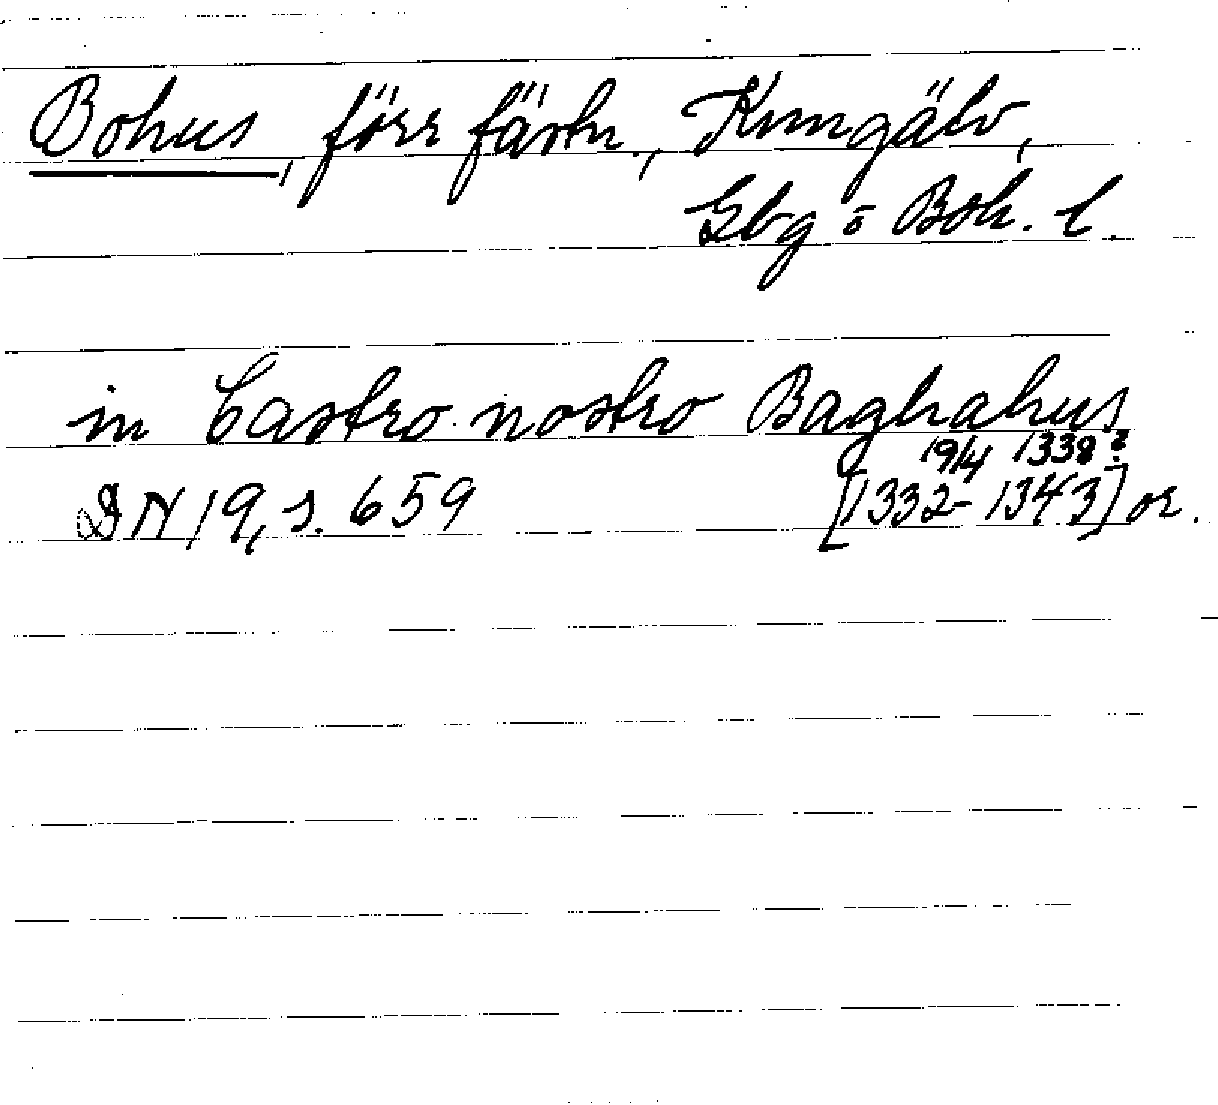 Bohus, förr fästn., Kungälv,
Gbg o Boh. l.
in Castro nostro Baghahus
19/4 1338?
DN 19, s. 659 [1332-1343] or.